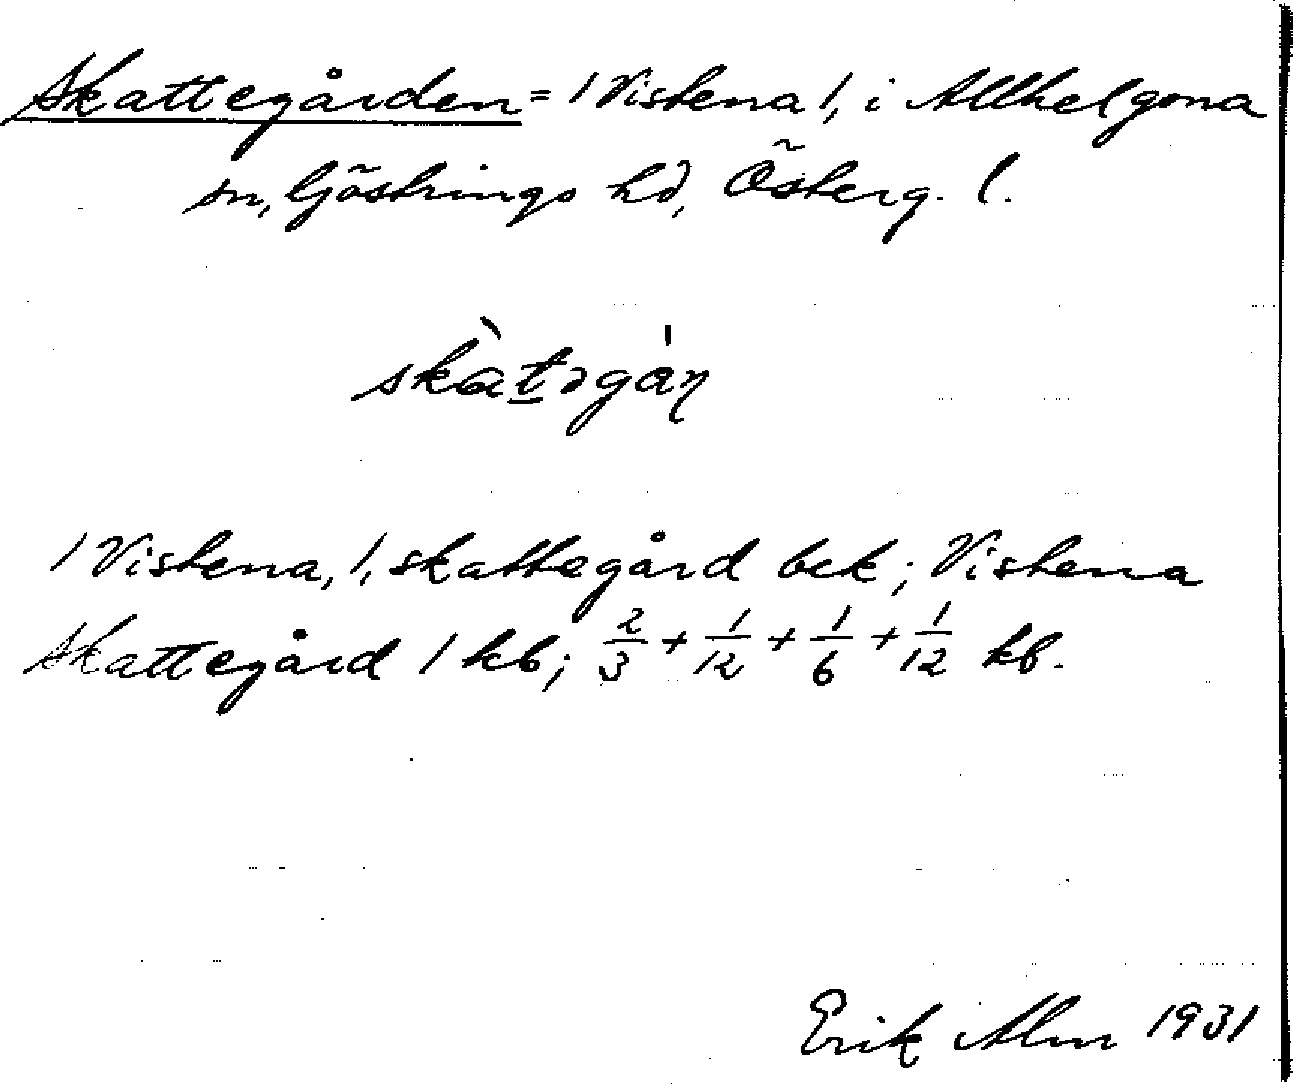 Skattegården = 1 Vistena 1, i Allhelgona
sn, Göstrings hd, Österg. l.
skàt̲əgá̀ɳ
1 Vistena, 1, skattegård bek; Vistena
Skattegård 1 kb; 2/3 + 1/12 + 1/6 + 1/12 kb.
Erik Alm 1931